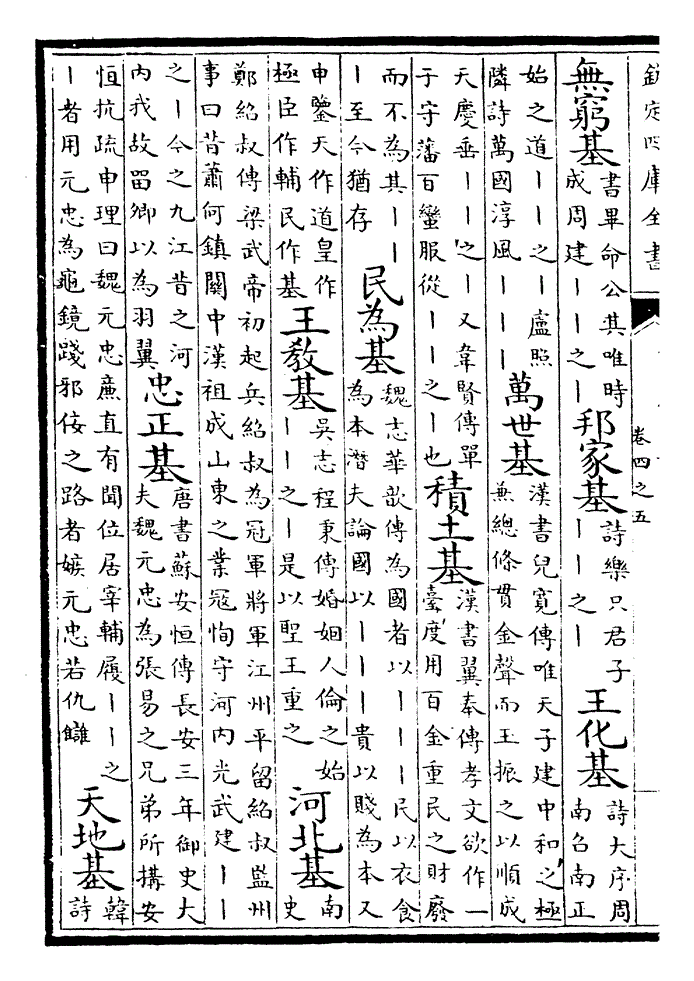 欽定四庫全書
卷四之五
無窮基書畢命公其唯時成周建丨丨之丨邦家基詩樂只君子丨丨之丨王化基詩大序周南召南正
始之道丨丨之丨盧照隣詩萬國淳風丨丨丨萬世基漢書兒寬傳唯天子建中和之極兼總條貫金聲而玉振之以順成
天慶垂丨丨之丨又韋賢傳單于守藩百蠻服從丨丨之丨也積土基漢書翼奉傳孝文欲作一臺度用百金重民之財廢
而不為其丨丨丨至今猶存民為基魏志華歆傳為國者以丨丨丨民以衣食為本潛夫論國以丨丨丨貴以賤為本又
申鑒天作道皇作極臣作輔民作基王敎基吳志程秉傳婚姻人倫之始丨丨之丨是以聖王重之河北基南史
鄭紹叔傳梁武帝初起兵紹叔為冠軍將軍江州平留紹叔監州事曰昔蕭何鎮關中漢祖成山東之業冦恂守河内光武建丨丨
之丨今之九江昔之河内我故留卿以為羽翼忠正基唐書蘇安恒傳長安三年御史大夫魏元忠為張易之兄弟所搆安
恒抗疏申理曰魏元忠廉直有聞位居宰輔履丨丨之丨者用元忠為龜鏡踐邪佞之路者嫉元忠若仇讎天地基韓詩